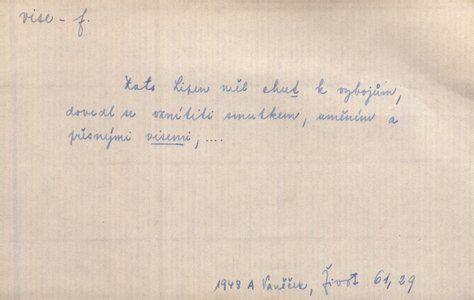 vise - f.
Zato Lipen měl chuť k výbojům,
dovedl se vznítiti smutkem, uměním a
přesnými visemi, ....
1948 A Vaněček, Život 61,29